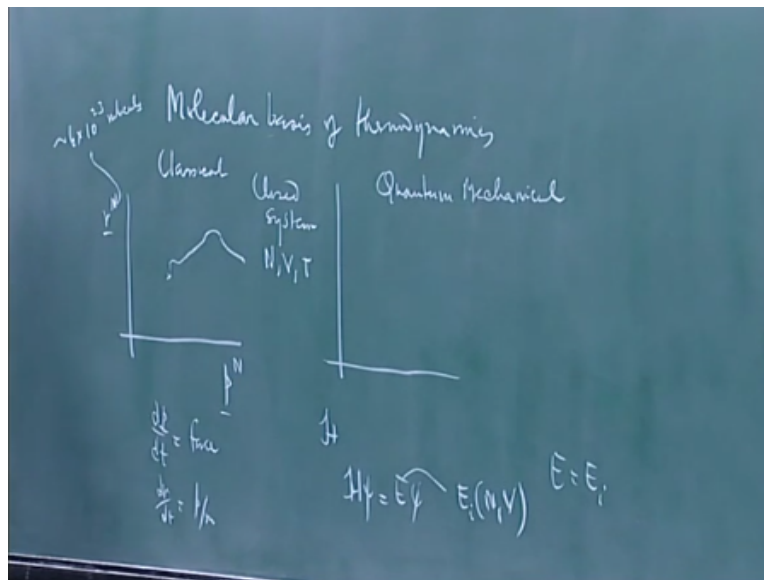 Molecular basis of thermodynamics
~6x10^23 
Classical
Closed
System
N, V, T
Quantum Mechanical
r^N
p^N
dp/dt = force
dr/dt = p/m
H
Hψ = Eψ
E_i(N,V)
E = E_i